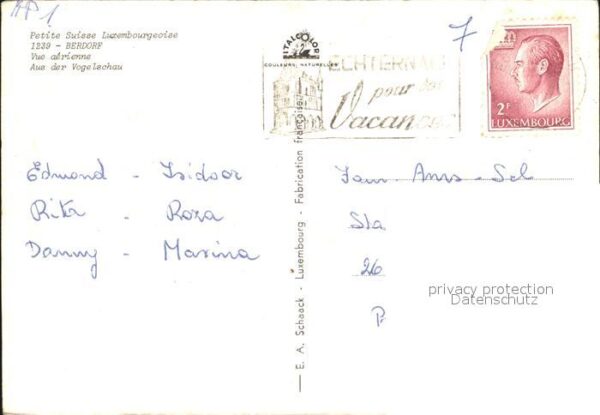 Petite Suisse Luxembourgeoise
1239 - BERDORF
Vue aérienne
Aus der Vogelschau
ITALCOLOR
COULEURS NATURELLES
ECHTERNACH
pour
Vacances
7
2F
LUXEMBOURG
Edmond - Isidoor
Rita - Roza
Danny - Marina
E. A. Schaack - Luxembourg - Fabrication française
Fam.
Sta
26
P
privacy protection
Datenschutz